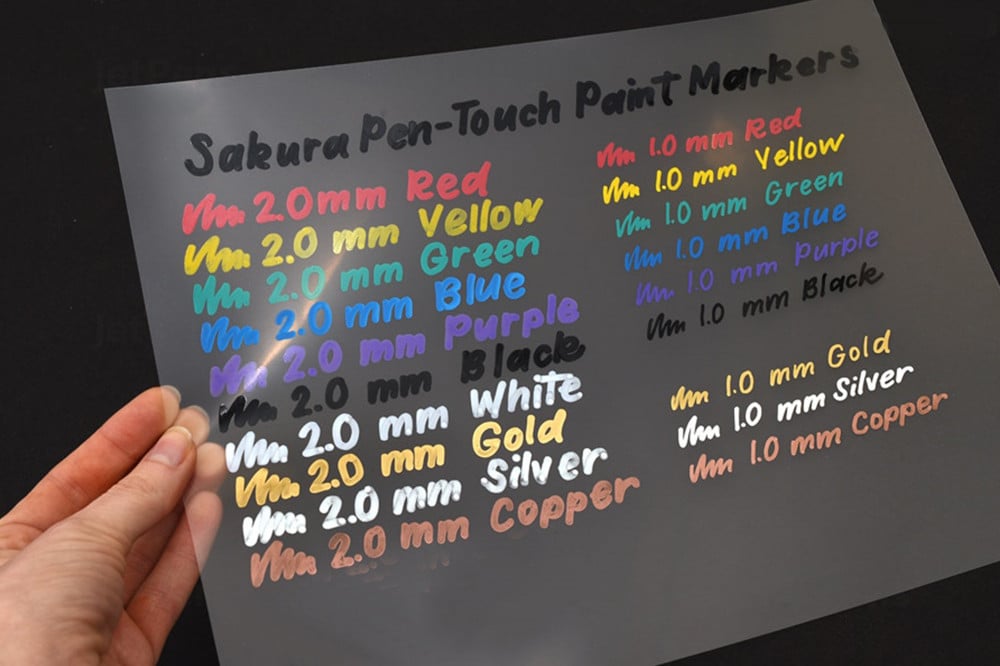 Sakura Pen-Touch Paint Markers
2.0mm Red
2.0 mm Yellow
2.0 mm Green
2.0 mm Blue
2.0 mm Purple
2.0 mm Black
2.0 mm White
2.0 mm Gold
2.0 mm Silver
2.0 mm Copper
1.0 mm Red
1.0 mm Yellow
1.0 mm Green
1.0 mm Blue
1.0 mm Purple
1.0 mm Black
1.0 mm Gold
1.0 mm Silver
1.0 mm Copper